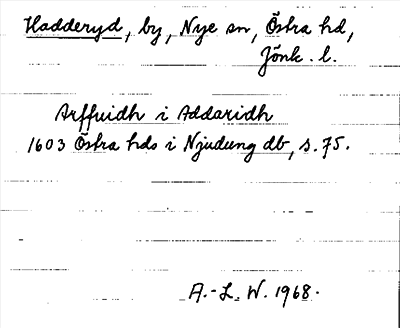 Hadderyd, by, Nye sn, Östra hd,
Jönk. l.
Arffuidh i Addaridh
1603 Östra hds i Njudung db, s. 75.
A.-L. W. 1968.